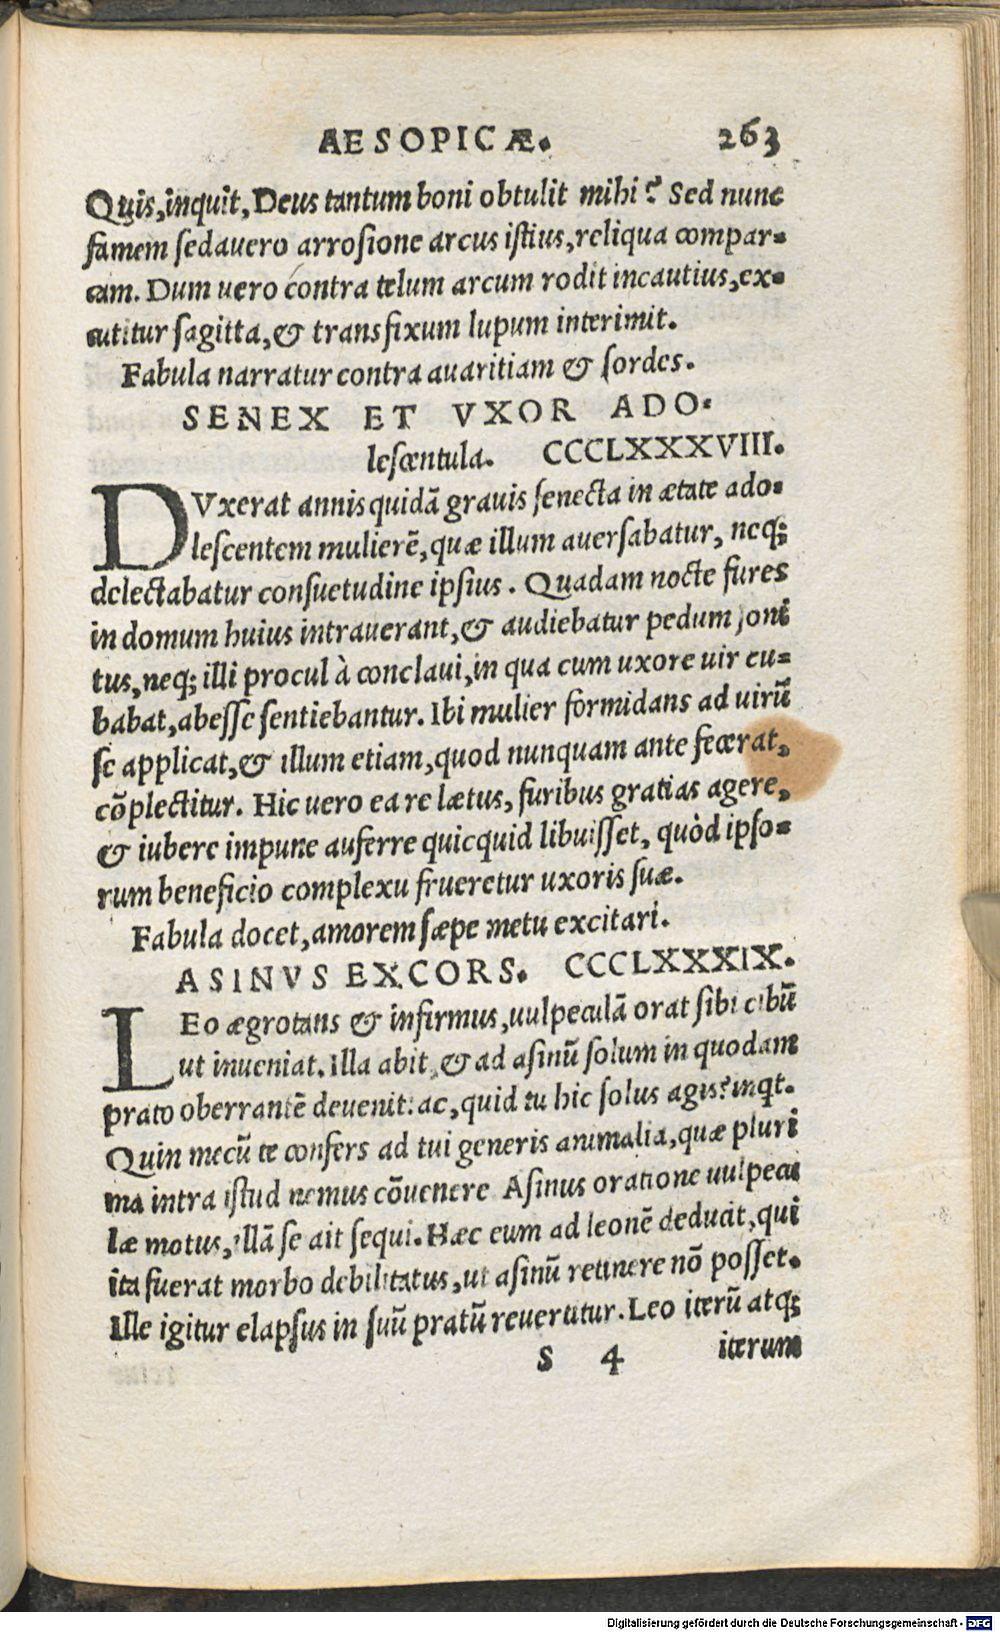 AESOPICÆ. 263
Quis, inquit, Deus tantum boni obtulit mihi? Sed nunc
famem sedauero arrosione arcus istius, reliqua compar-
cam. Dum uero contra telum arcum rodit incautius, ex-
cutitur sagitta, & transfixum lupum interimit.
Fabula narratur contra auaritiam & sordes.
SENEX ET VXOR ADO-
lescentula. CCCLXXXVIII.
DVxerat annis quidā grauis senecta in ætate ado-
lescentem mulierē, quæ illum auersabatur, neq;
delectabatur consuetudine ipsius. Quadam nocte fures
in domum huius intrauerant, & audiebatur pedum soni
tus, neq; illi procul à conclaui, in qua cum uxore uir cu-
babat, abesse sentiebantur. Ibi mulier formidans ad uirū
se applicat, & illum etiam, quod nunquam ante fecerat,
cōplectitur. Hic uero ea re lætus, furibus gratias agere,
& iubere impune auferre quicquid libuisset, quòd ipso-
rum beneficio complexu frueretur uxoris suæ.
Fabula docet, amorem sæpe metu excitari.
ASINVS EXCORS. CCCLXXXIX.
LEo ægrotans & infirmus, uulpeculā orat sibi cibū
ut inueniat. Illa abit, & ad asinū solum in quodam
prato oberrantē deuenit: ac, quid tu hic solus agis? inqt.
Quin mecū te confers ad tui generis animalia, quæ pluri
ma intra istud nemus cōuenere Asinus oratione uulpecu
læ motus, illā se ait sequi. Hæc eum ad leonē deducit, qui
ita fuerat morbo debilitatus, ut asinū retinere nō posset.
Ille igitur elapsus in suū pratū reuertitur. Leo iterū atq;
S 4 iterum
Digitalisierung gefördert durch die Deutsche Forschungsgemeinschaft - DFG